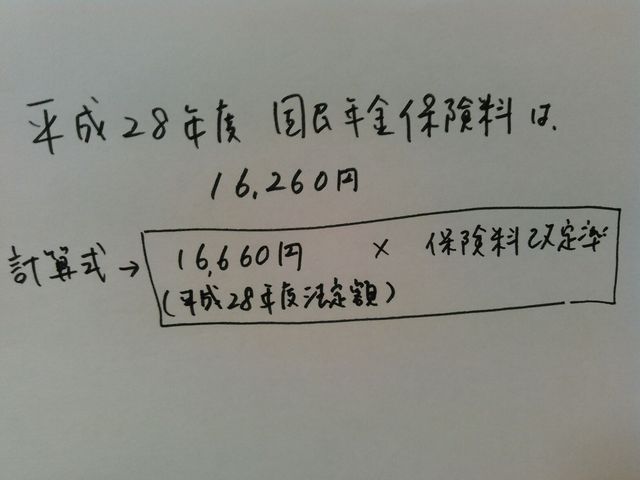 平成28年度 国民年金保険料は、
16,260円
計算式→ 16,660円 × 保険料改定率
(平成28年度法定額)